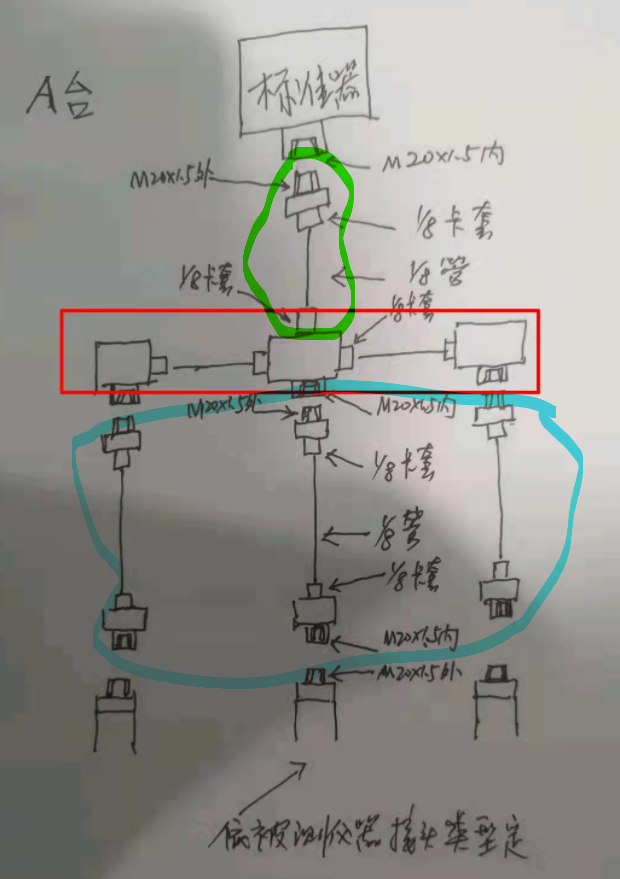 A台
标准器
M20×1.5内
M20×1.5外
1/8卡套
1/8管
1/8卡套
1/8卡套
M20×1.5外
M20×1.5内
1/8卡套
1/8管
1/8卡套
M20×1.5内
M20×1.5外
依被测仪器接头类型定